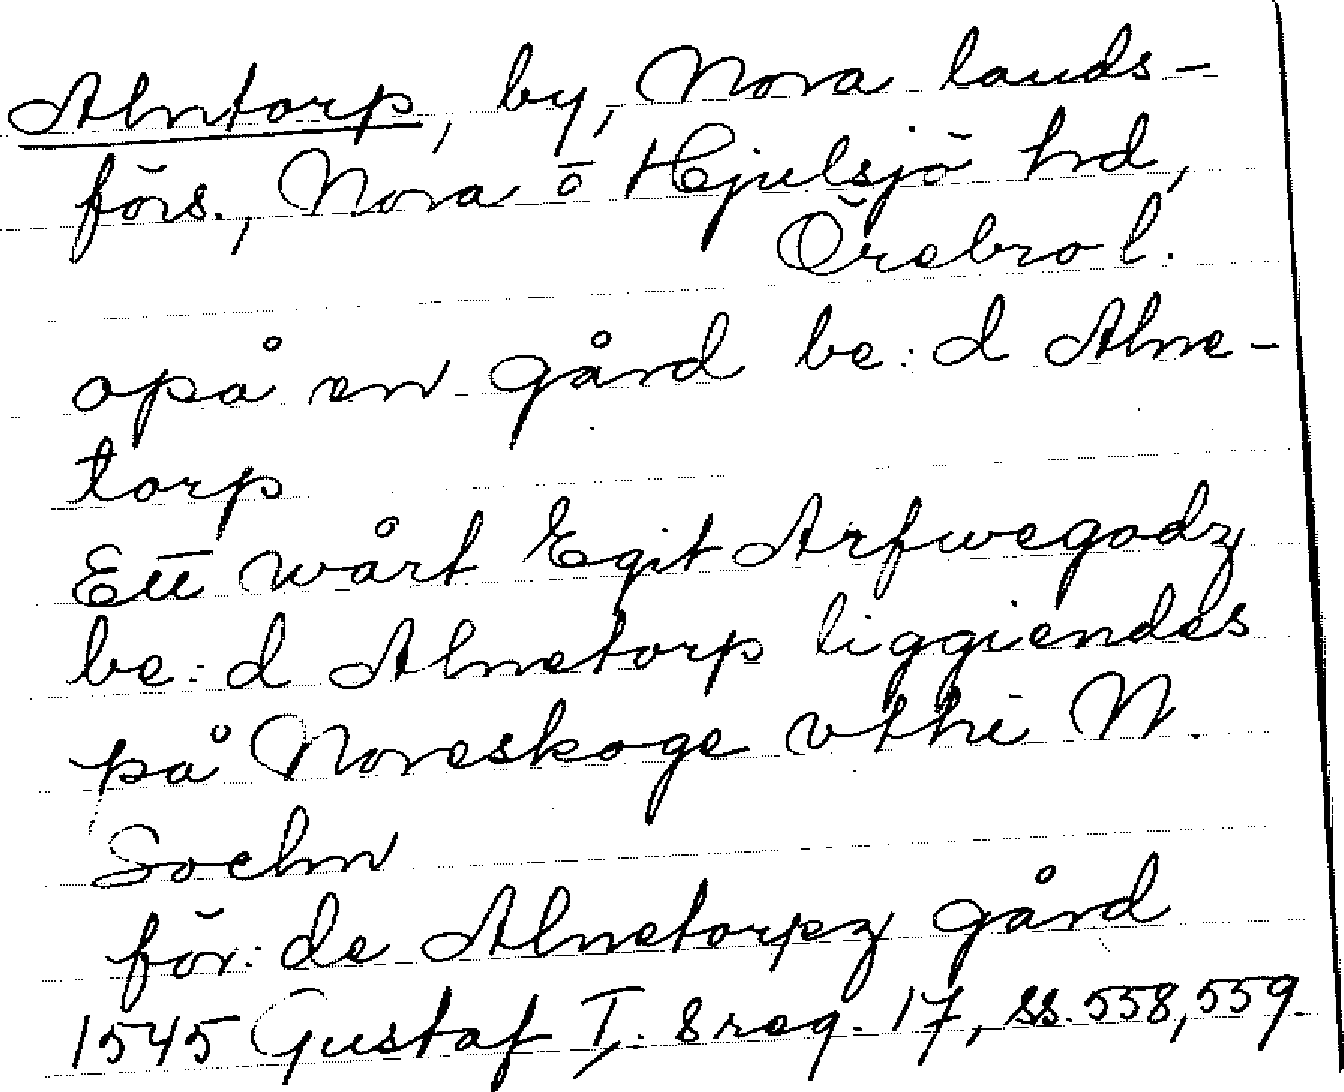 Alntorp, by, Nora lands-
förs., Nora o Hjulsjö hd,
Örebro l.
opå en gård be:d Alne-
torp
Ett wårt Egit Arfwegodz
be:d Alnetorp liggiendes
på Noreskoge vthi N.
Sochn
för:de Alnetorpz gård
1545 Gustaf I:s reg. 17, ss. 558, 559.